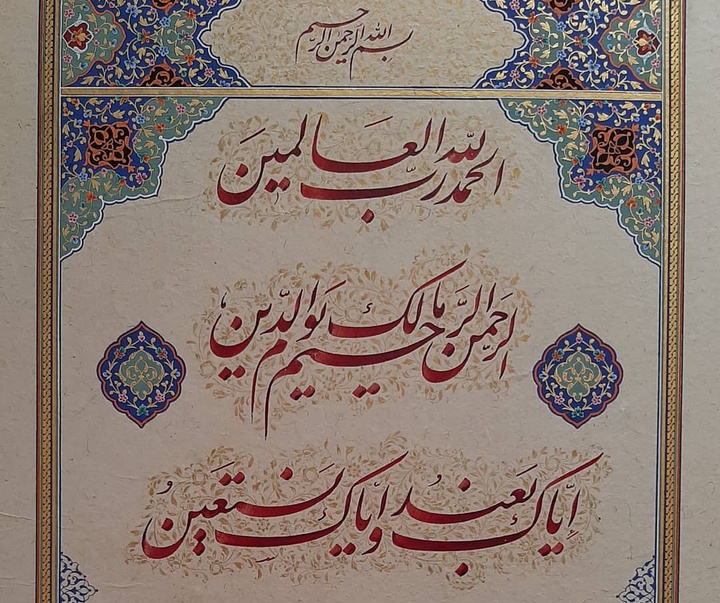 بسم الله الرحمن الرحیم
الحمدلله رب العالمین
الرحمن الرحیم مالک یوم الدین
إیاک نعبد وإیاک نستعین